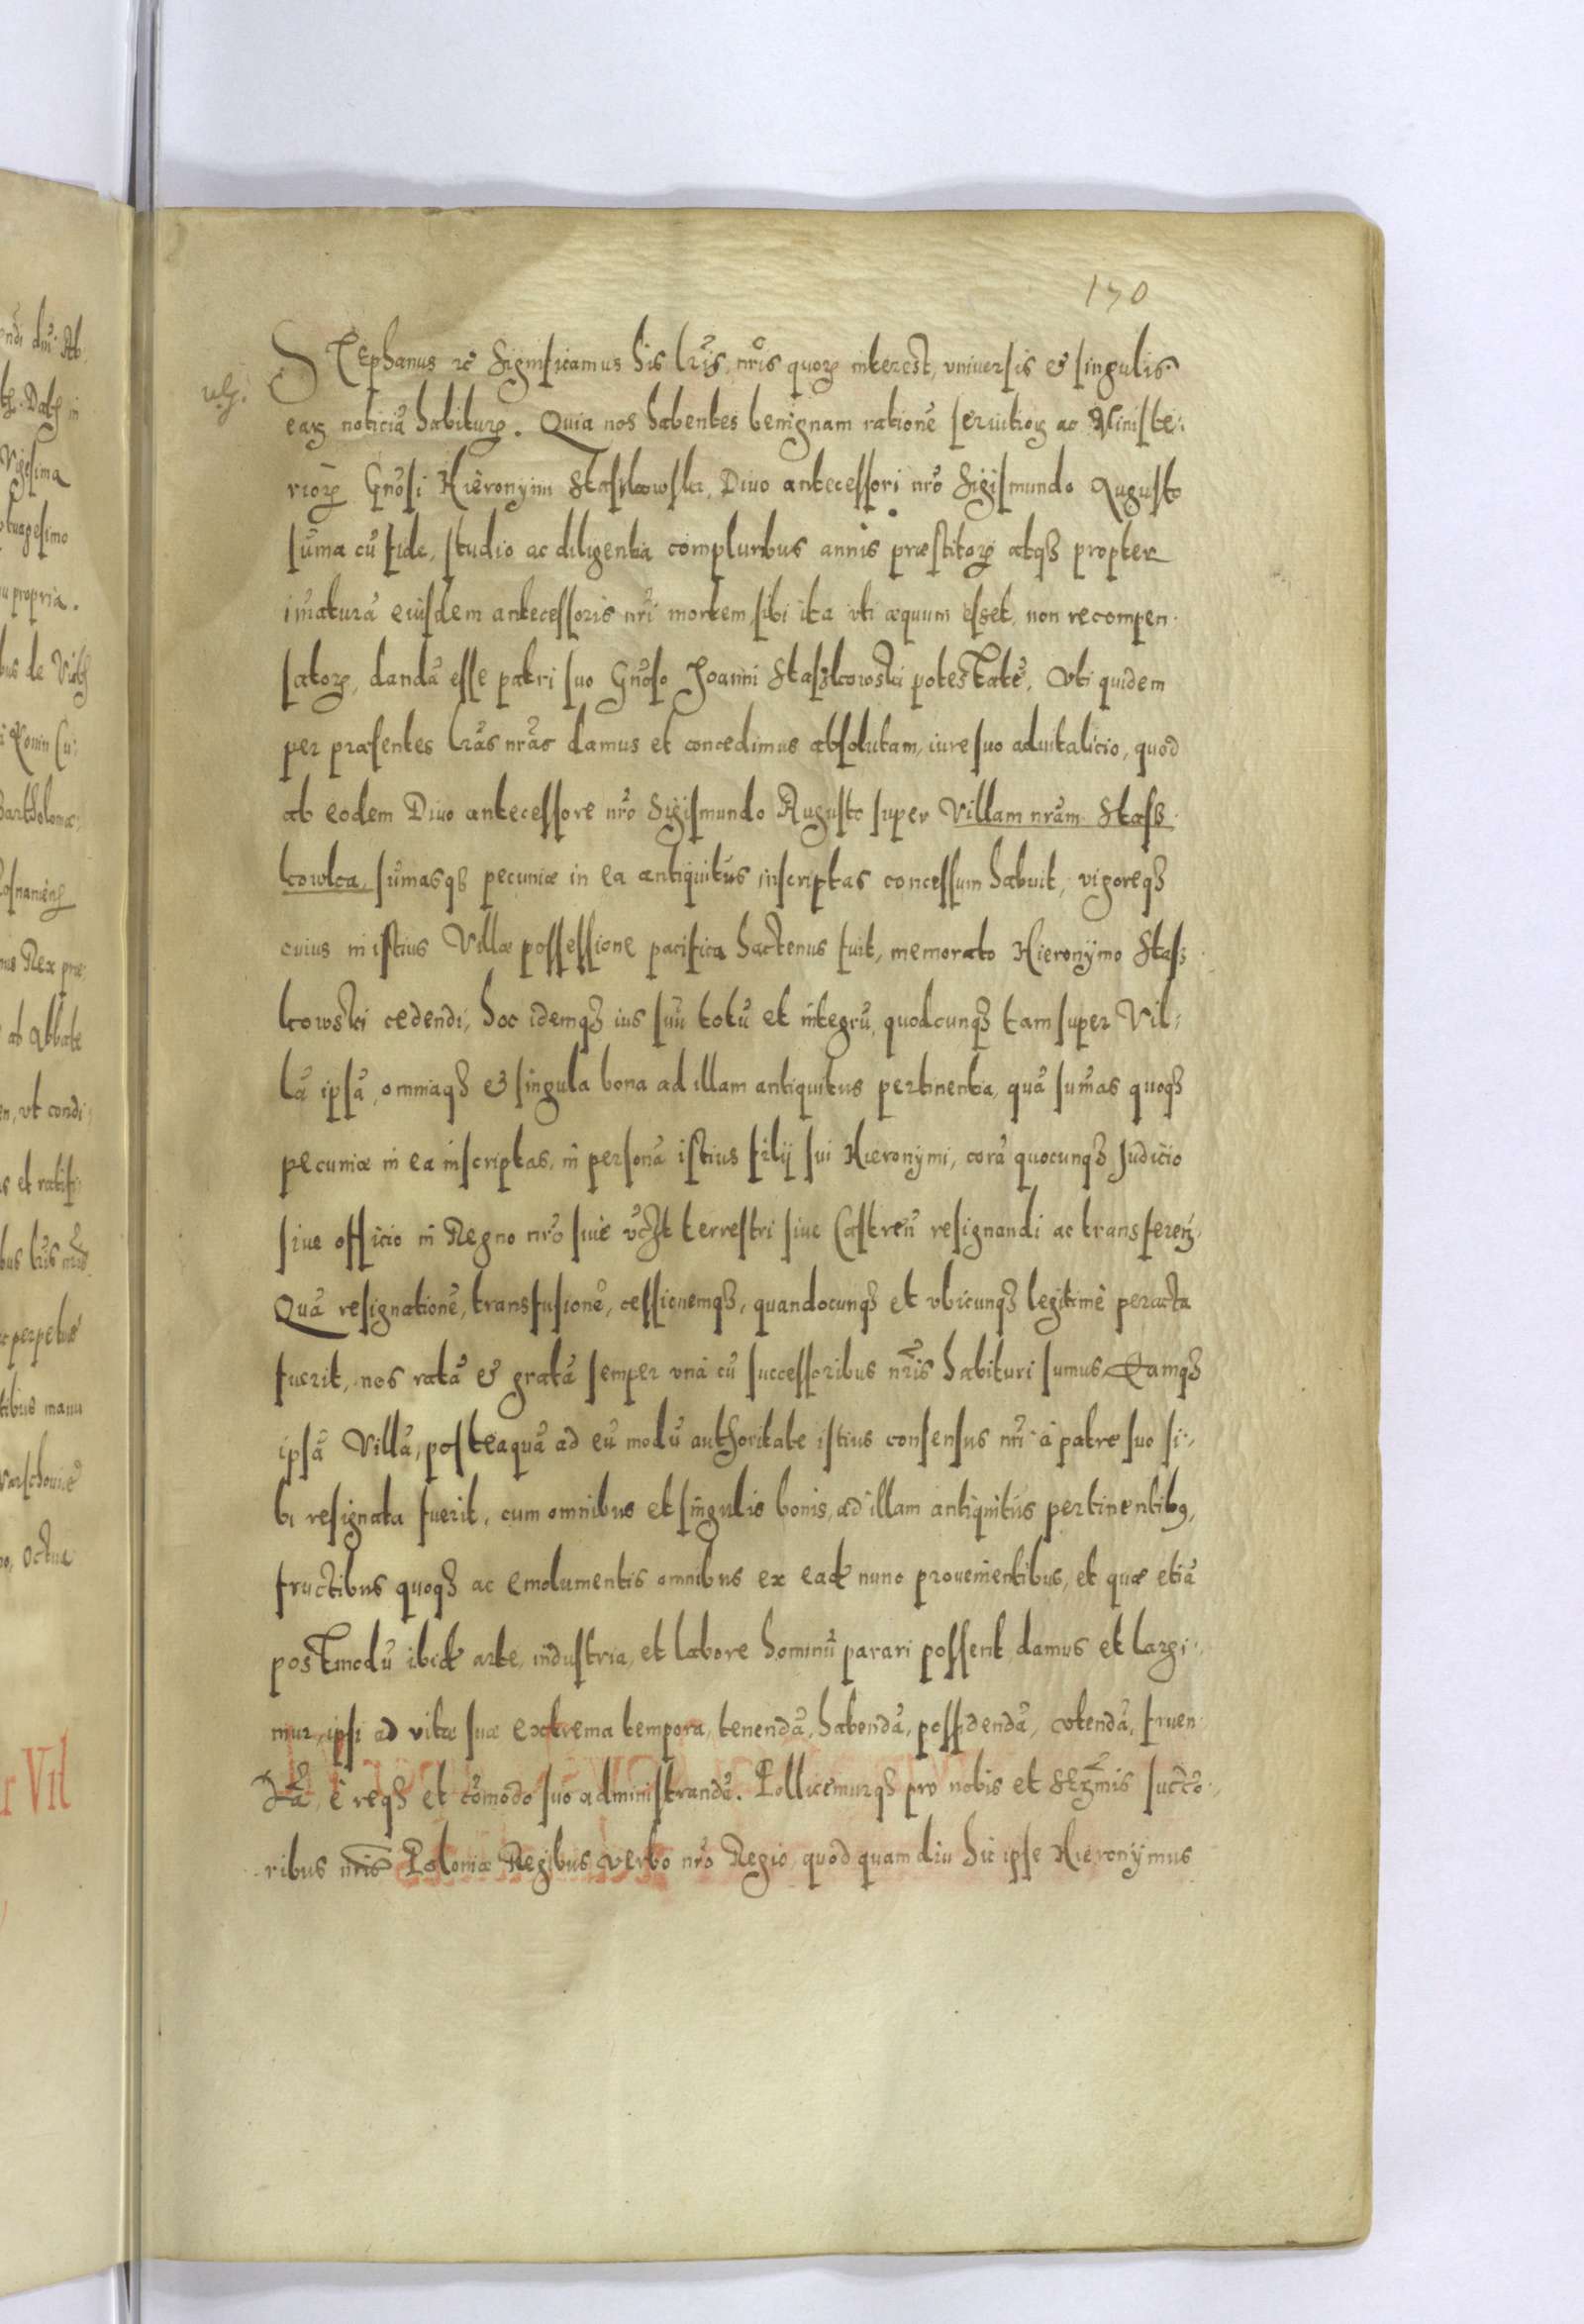 170
STephanus etc Significamus his lrīs nrīs quorum interest, vniuersis et singulis
earum noticiā habiturum. Quia nos habentes benignam rationē seruitiorum ac Ministe:
riorum Gnosi Hieronymi Staszkowski, Diuo antecessori nrō Sigismundo Augusto
sūma cū fide, studio ac diligentia compluribus annis præstitorum atqȝ propter
imaturā eiusdem antecessoris nrī mortem, sibi ita vti æquum esset, non recompen
satorum, dandā esse patri suo Gnoso Joanni Staszkowski potestatē. Vti quidem
per præsentes lrās nrās damus et concedimus absolutam, iure suo aduitalicio, quod
ab eodem Diuo antecessore nrō Sigismundo Augusto super Villam nrām Stasz
kowka, sūmasqȝ pecuniæ in ea antiquitùs inscriptas concessum habuit, vigoreqȝ
cuius in istius Villæ possessione pacifica hactenus fuit, memorato Hieronymo Stasz
kowski cedendi, hoc idemqȝ ius suū totū et integrū, quodcunqȝ tam super Vil:
lā ipsā, omniaqȝ et singula bona ad illam antiquitus pertinentia, quā sumās quoqȝ
pecuniæ in ea inscriptas, in personā istius filij sui Hieronymi, corā quocunqȝ Judicio
siue officio in Regno nrō siue terrestri siue Castreñ resignandi ac transferen̄.
Quā resignationē, transfusionē, cessionemqȝ, quandocunqȝ et vbicunqȝ legitimè peracta
fuerit, nos ratā et gratā semper vnà cū successoribus nrīs habituri sumus Eamqȝ
ipsā Villā, posteaquā ad eū modū authoritate istius consensus nrī à patre suo si:
bi resignata fuerit, cum omnibus et singulis bonis, ad illam antiquitùs pertinentibus,
fructibus quoqȝ ac emolumentis omnibus ex ead nunc prouenientibus, et quæ etiā
postmodū ibid arte, industria, et labore hominū parari possent, damus et largi:
mur, ipsi ad vitæ suæ extrema tempora, tenendā, habendā, possidendā, vtendā, fruen
dā, è reqȝ et cōmodo suo administrandā. Pollicemurqȝ pro nobis et Serm̄is succō
ribus nrīs Poloniæ Regibus verbo nrō Regio, quod quam diu hic ipse Hieronymus